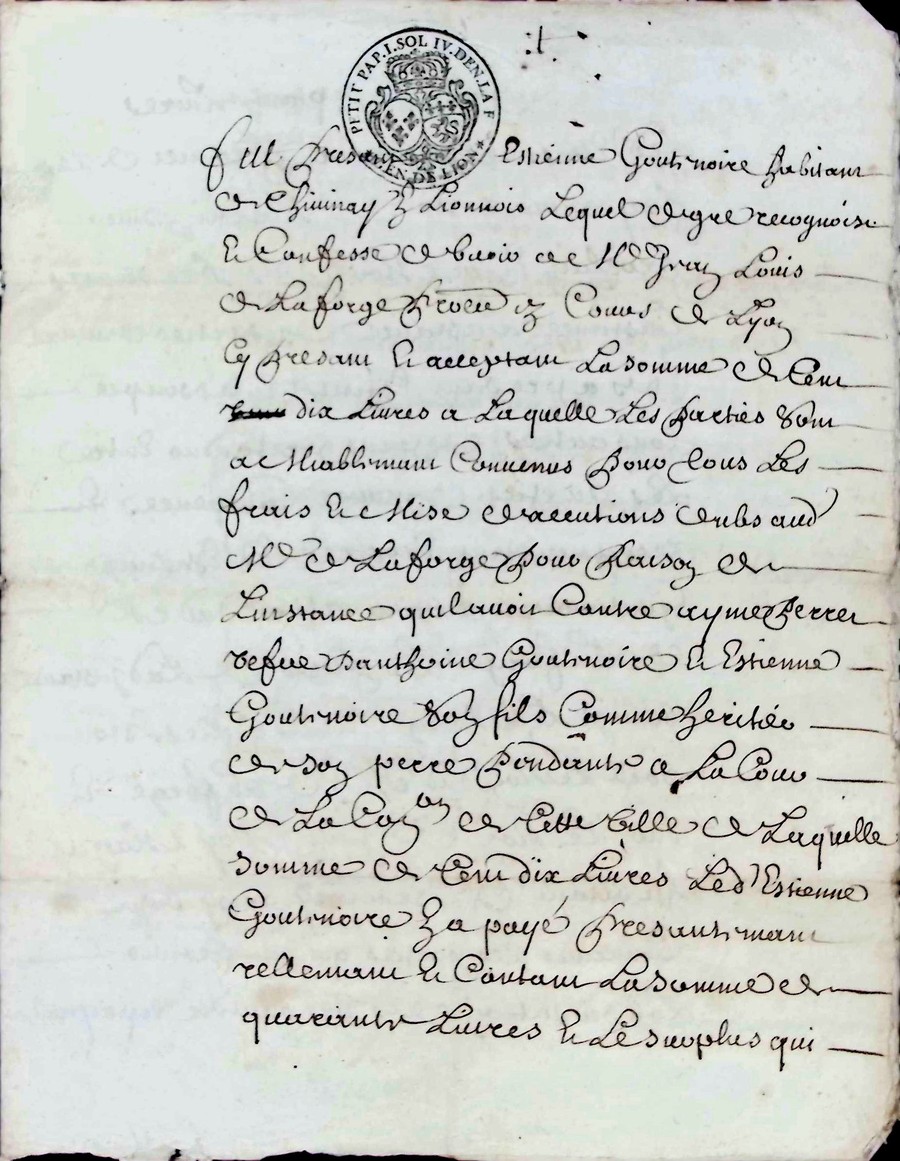 PETIT PAP. I. SOL IV. DEN. LA F
EN. DE LION
fut Presant Estienne Goutenoire habitant
de Chivinay en Lionnois Lequel de gré recognoist
Et Confesse debvoir a Me Jean Louis
de Laforge Procu en Cours de Lyon
Cy Presant Et acceptant La somme de Cent
dix Livres a Laquelle Les Parties Sont
amiablemant Convenus Pour tous Les
frais Et Mise d'exécutions deubs aud
Me de Laforge Pour Raison de
L'instance quil avoit Contre ayme Perret
vefve d'anthoine Goutenoire Et Estienne
Goutenoire Son fils Comme heritier
de son perre Pendante a La Cour
de La Con.on de Cette Ville de Laquelle
somme de Cent dix Livres Led Estienne
Goutenoire En a payé Presantemant
rellemant Et Contant La somme de
quarante Livres Et Le surplus qui